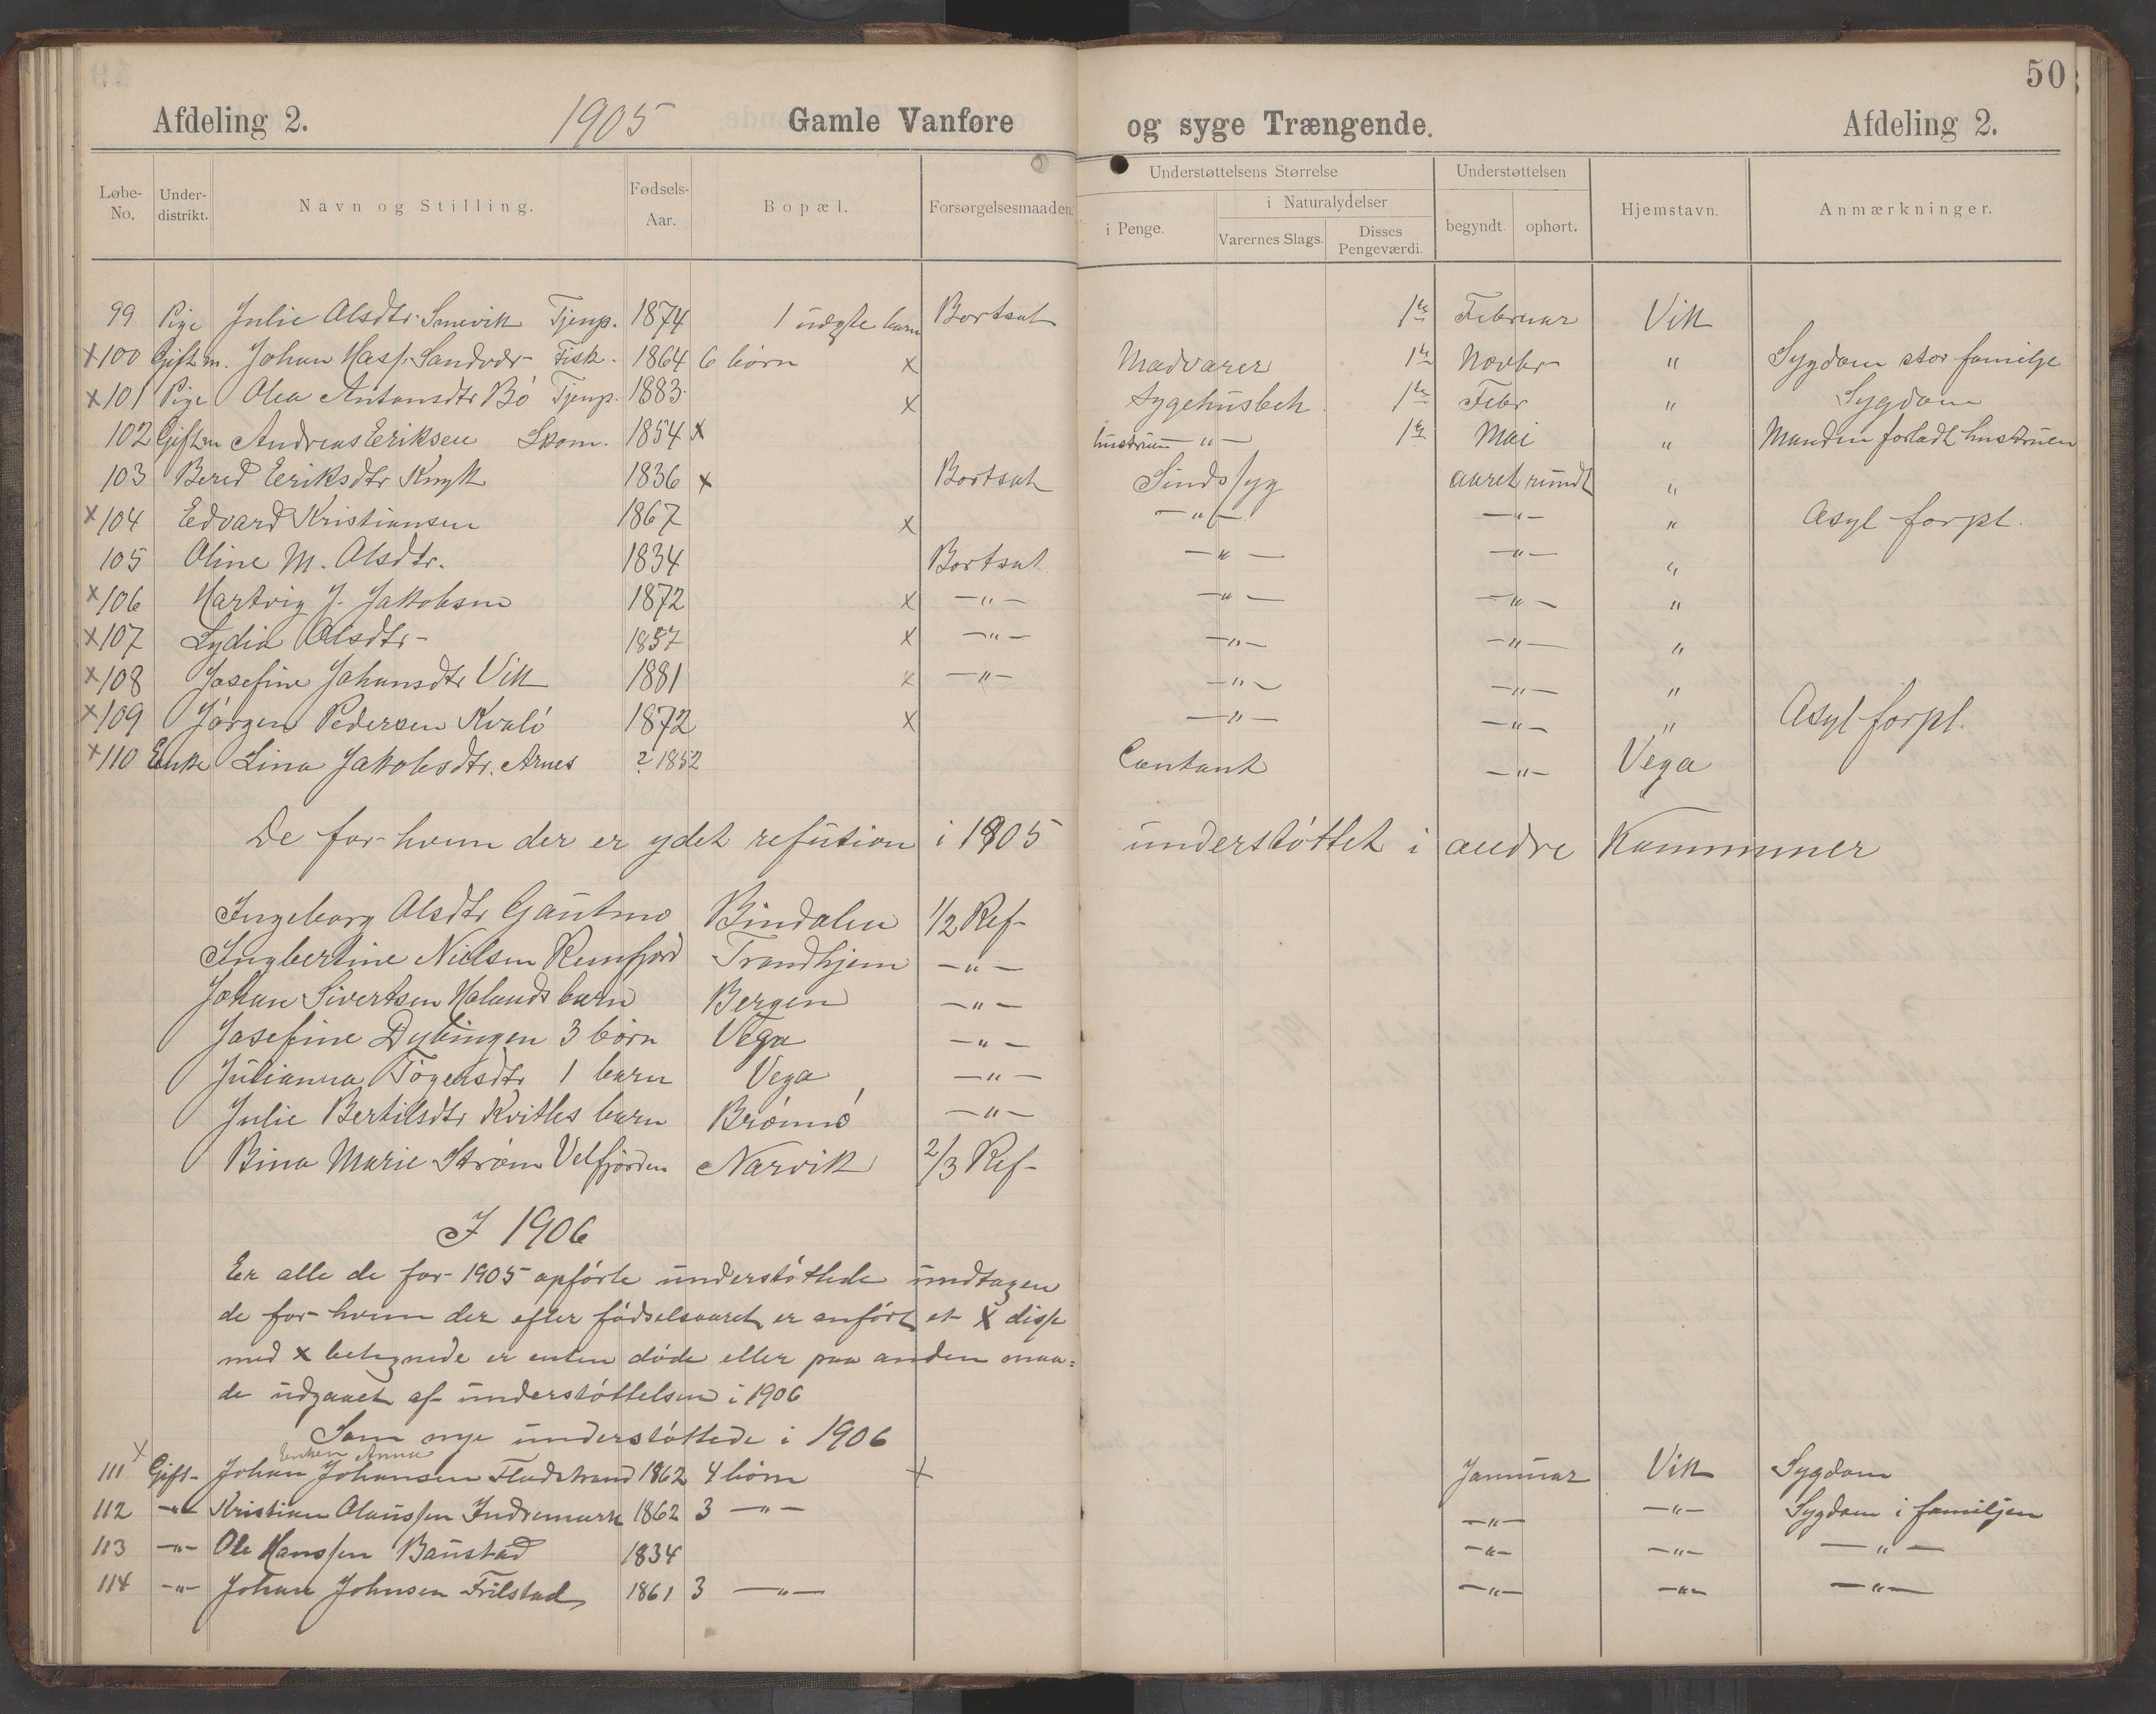 50
Afdeling 2. 1905 Gamle Vanføre og syge Trængende. Afdeling 2.
Løbe-No. Under-distrikt. Navn og Stilling. Fødsels-Aar. Bopæl. Forsørgelsesmaaden. Understøttelsens Størrelse i Penge. i Naturalydelser Varernes Slags. Disses Pengeværdi. Understøttelsen begyndt. ophørt. Hjemstavn. Anmærkninger.
99 Pige Julie Olsdtr. Smevik Tjenp. 1874 1 uægte barn Bortsat 1ste Februar Vik
x100 Gift m. Johan Hass. Sandvær Fisk. 1864 6 børn x Madvarer 1ste Novbr " Sygdom stor familje
x101 Pige Olea Antonsdtr Bø Tjenp. 1883 x Sygehusbeh. 1ste Febr " Sygdom
102 Gift m Andreas Eriksen Skom. 1854 x hustruen —"— 1ste Mai " Manden forladt hustruen
103 Bered Eriksdtr Knyk 1836 x Bortsat Sindssyg aaret rundt "
x104 Edvard Kristiansen 1867 x —"— —"— " Asyl forpl.
105 Oline M. Olsdtr. 1834 Bortsat —"— —"— "
x106 Hartvig J. Jakobsen 1872 x —"— —"— —"— "
x107 Lydia Olsdtr- 1857 x —"— —"— —"— "
x108 Josefine Johansdtr Vik 1881 x —"— —"— —"— "
x109 Jørgen Pedersen Kvalø 1872 x —"— —"— " Asyl forpl.
x110 Enke Lina Jakobsdtr. Arnes ? 1852 Contant —"— Vega
De for hvem der er ydet refusion i 1905 understøttet i andre Kommuner
Ingeborg Olsdtr Gautmo Bindalen 1/2 Ref-
Ingbertine Nielsen Remfjord Trondhjem —"—
Johan Sivertsen Holands barn Bergen —"—
Josefine Dybingen 3 børn Vega —"—
Julianna Tøgersdtr 1 barn Vega —"—
Julie Bertilsdtr Kvitles barn Brønnø —"—
Bina Marie Strøm Velfjorden Narvik 2/3 Ref-
I 1906
Er alle de for 1905 opførte understøttede undtagen
de for hvem der efter fødselsaaret er anført et x disse
med x betegnede er enten døde eller paa anden maa-
de udgaaet af understøttelsen i 1906
Som nye understøttede i 1906
Enken Anna
x 111 Gift- Johan Johansen Fladstrand 1862 4 børn x Januar Vik Sygdom
112 —"— Kristian Olaussen Indremark 1862 3 —"— —"— —"— Sygdom i familjen
113 —"— Ole Hanssen Baustad 1834 —"— —"— —"—
114 —"— Johan Johnsen Frilstad 1861 3 —"— —"— —"— —"—